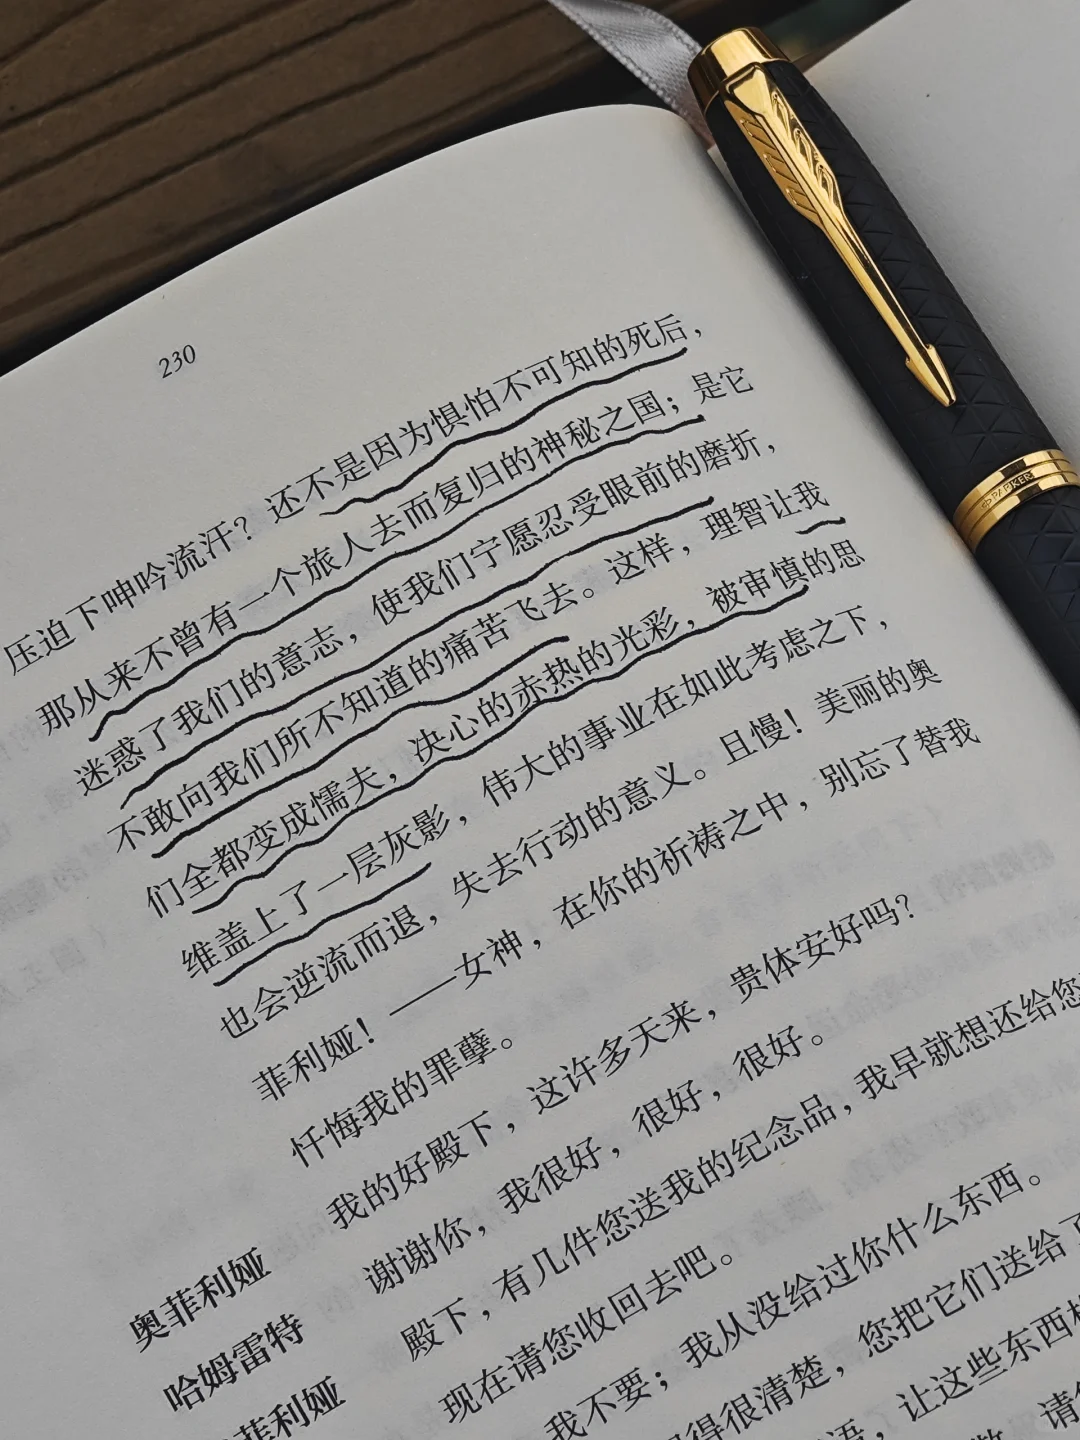 230
压迫下呻吟流汗？还不是因为惧怕不可知的死后，
那从来不曾有一个旅人去而复归的神秘之国；是它
迷惑了我们的意志，使我们宁愿忍受眼前的磨折，
不敢向我们所不知道的痛苦飞去。这样，理智让我
们全都变成懦夫，决心的赤热的光彩，被审慎的思
维盖上了一层灰影，伟大的事业在如此考虑之下，
也会逆流而退，失去行动的意义。且慢！美丽的奥
菲利娅！——女神，在你的祈祷之中，别忘了替我
忏悔我的罪孽。
奥菲利娅 我的好殿下，这许多天来，贵体安好吗？
哈姆雷特 谢谢你，我很好，很好，很好。
菲利娅 殿下，有几件您送我的纪念品，我早就想还给您
现在请您收回去吧。
我不要；我从没给过你什么东西。
得很清楚，您把它们送给了
语，让这些东西
请
PARKER